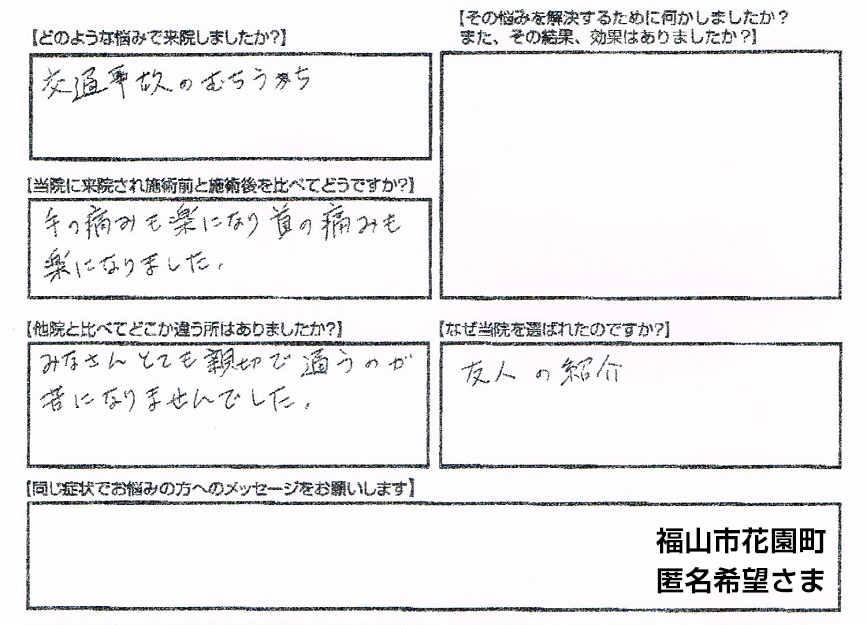 【どのような悩みで来院しましたか?】
交通事故のむちうち
【その悩みを解決するために何かしましたか?
また、その結果、効果はありましたか?】
【当院に来院され施術前と施術後を比べてどうですか?】
手の痛みも楽になり首の痛みも
楽になりました.
【他院と比べてどこか違う所はありましたか?】
みなさんとても親切で通うのが
苦になりませんでした.
【なぜ当院を選ばれたのですか?】
友人の紹介
【同じ症状でお悩みの方へのメッセージをお願いします】
福山市花園町
匿名希望さま